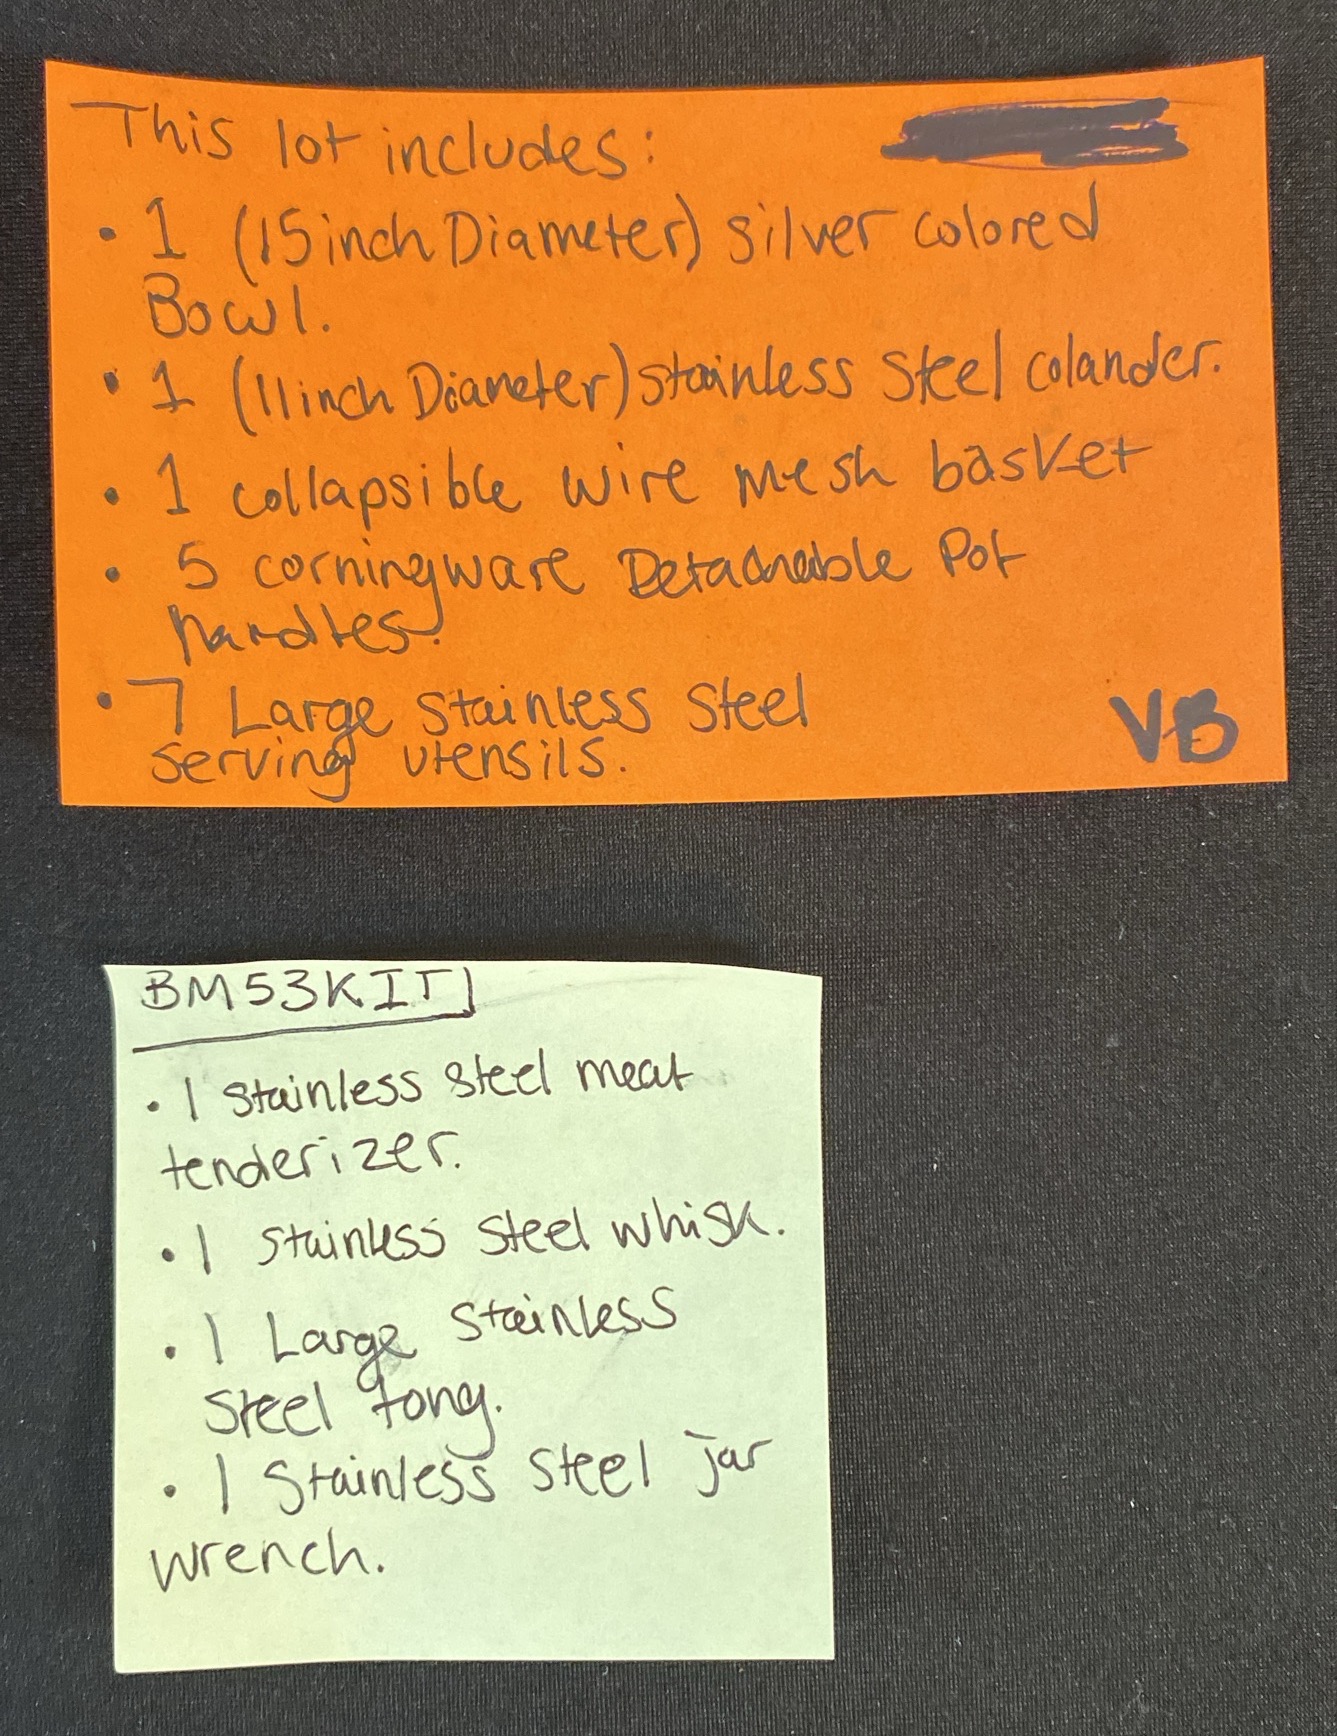 This lot includes:
• 1 (15inch Diameter) silver colored
Bowl.
• 1 (11inch Diameter) stainless steel colander.
• 1 collapsible wire mesh basket
• 5 corningware Detachable Pot
handles.
• 7 Large stainless steel
serving utensils.
VB
BM53KIT
• 1 stainless steel meat
tenderizer.
• 1 stainless steel whisk.
• 1 Large stainless
steel tong.
• 1 Stainless steel jar
wrench.